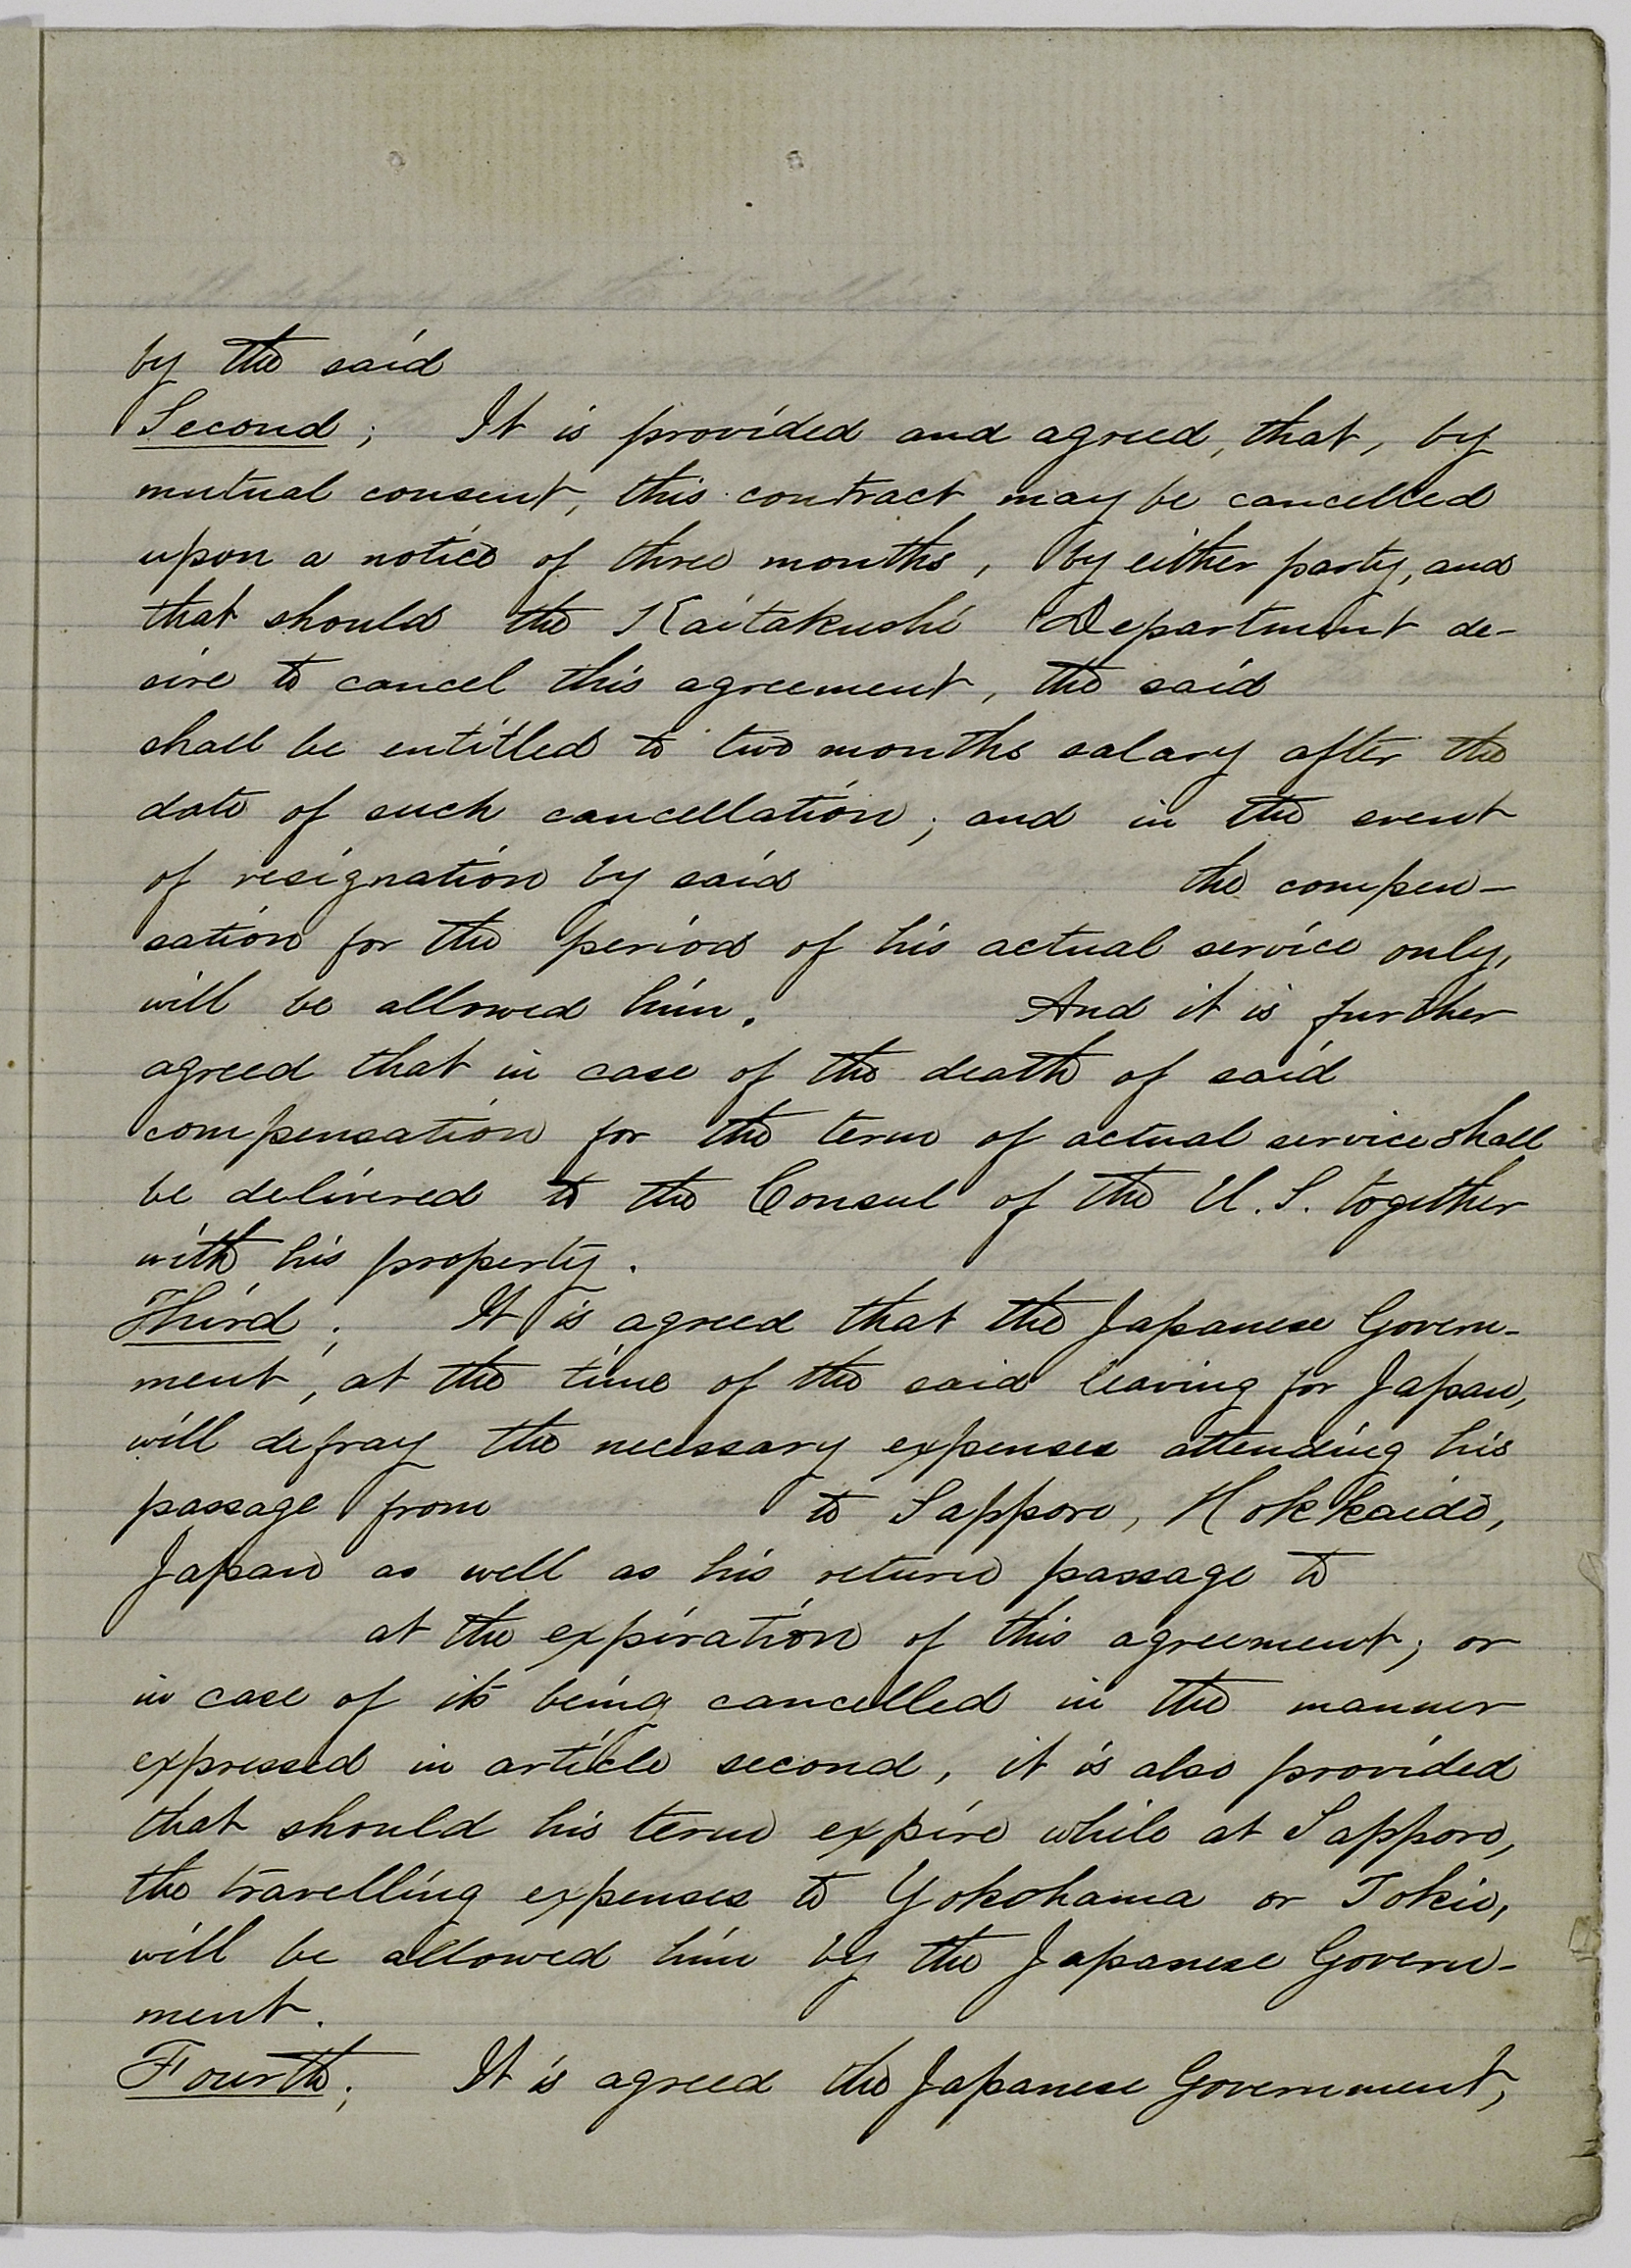 by the said
Second; It is provided and agreed, that, by
mutual consent, this contract may be cancelled
upon a notice of three months, by either party, and
that should the Kaitakushi Department de-
sire to cancel this agreement, the said
shall be entitled to two months salary after the
date of such cancellation; and in the event
of resignation by said the compen-
sation for the period of his actual service only,
will be allowed him. And it is further
agreed that in case of the death of said
compensation for the term of actual service shall
be delivered to the Consul of the U.S. together
with his property.
Third; It is agreed that the Japanese Govern-
ment, at the time of the said leaving for Japan,
will defray the necessary expenses attending his
passage from to Sapporo, Hokkaido,
Japan as well as his return passage to
at the expiration of this agreement; or
in case of its being cancelled in the manner
expressed in article second, it is also provided
that should his term expire while at Sapporo,
the travelling expenses to Yokohama or Tokio,
will be allowed him by the Japanese Govern-
ment.
Fourth; It is agreed the Japanese Government,